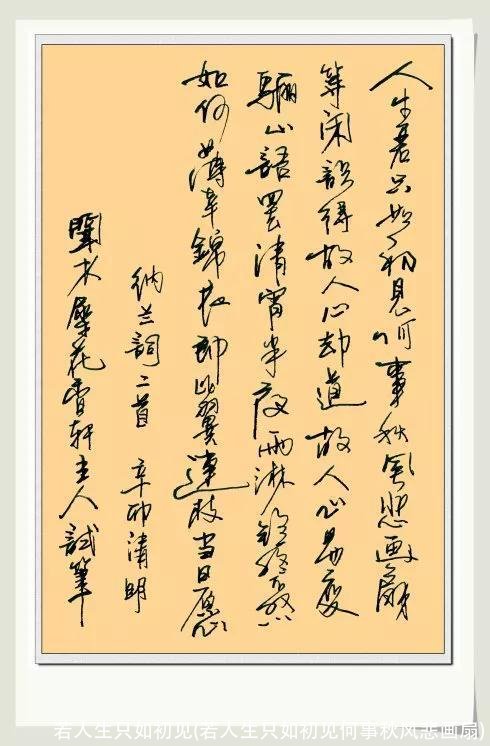 人生若只如初見何事秋風悲画扇
等闲識得故人心却道故人心易变
驪山語罷清宵半夜雨淋鈴終不怨
如何薄幸錦衣郎比翼連枝当日愿
纳兰詞二首 辛卯清明
聞木犀花香軒主人試筆
若人生只如初见(若人生只如初见何事秋风悲画扇)